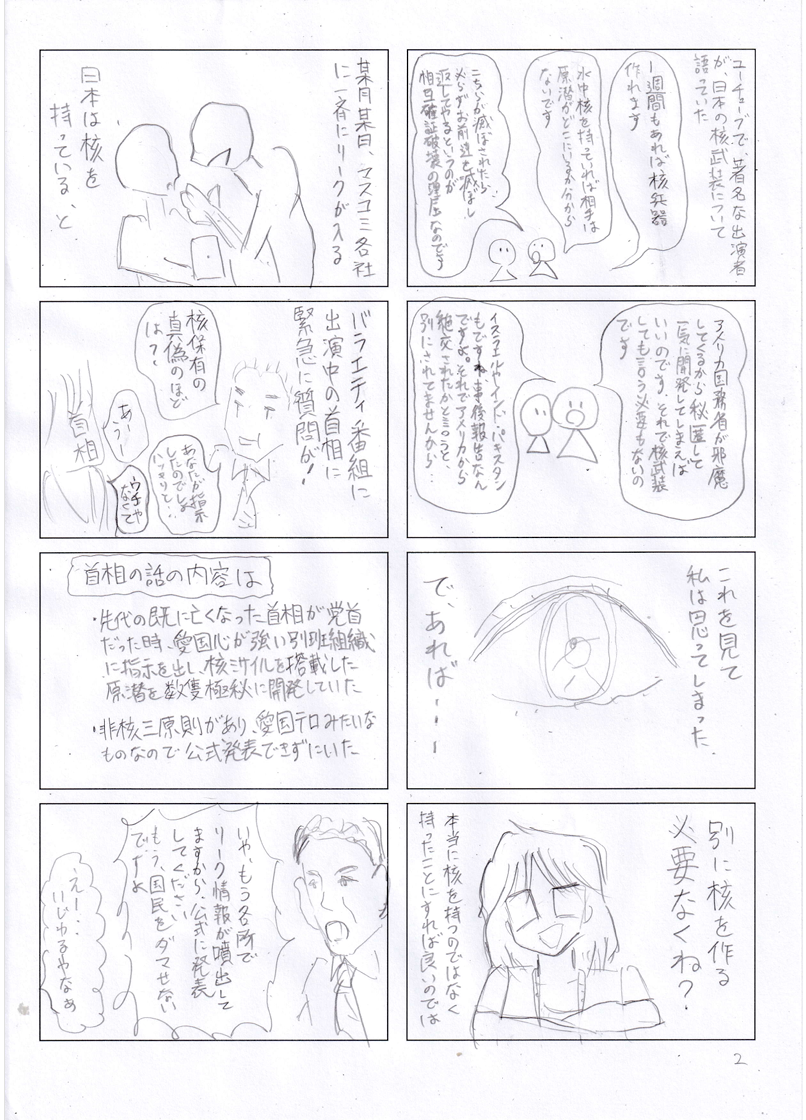 ユーチューブで、著名な出演者
が、日本の核武装について
語っていた
一週間もあれば核兵器
作れます
水中核を持っていれば相手は
原潜がどこにいるか分から
ないです
こちらが滅ぼされたら
必らずお前達を滅ぼし
返してやると、いうのが
相互確証破壊の理屈なのです
アメリカ国務省が邪魔
してくるから秘匿して
一気に開発してしまえば
いいのです、それで核武装
しても言う必要もないの
です
イスラエルやインド・パキスタン
もですね事後報告なん
ですよ。それでアメリカから
絶交されたかと言うと、
別にされてませんから‥
これを見て
私は思ってしまった
で、あれば・・・
別に核を作る
必要なくね?
本当に核を持つのではなく
持ったことにすれば良いのでは
某月某日、マスコミ各社
に一斉にリークが入る
日本は核を
持っている、と
バラエティ番組に
出演中の首相に
緊急に質問が!
核保有の
真偽のほど
は?
あー
うー
あなたが指示
したのでしょ
ハッキリと‥
ウチや
なくて
首相
首相の話の内容は
・先代の既に亡くなった首相が党首
だった時、愛国心が強い別班組織
に指示を出し、核ミサイルを搭載した
原潜を数隻極秘に開発していた
・非核三原則があり、愛国テロみたいな
ものなので公式発表できずにいた
いや、もう各所で
リーク情報が噴出して
ますから、公式に発表
してください
もう、国民をダマせない
ですよ
えー・・
いじゅるやなぁ
2